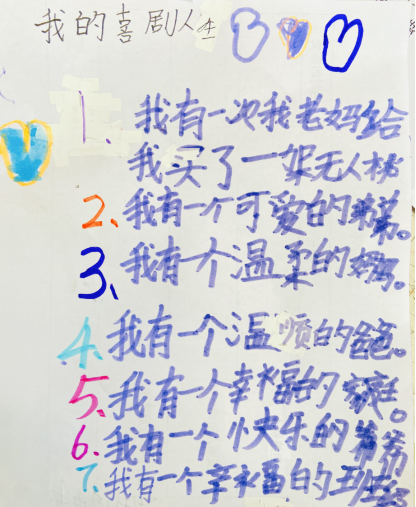 我的喜剧人生
1、我有一次我老妈给
我买了一架无人
2、我有一个可爱的弟弟。
3、我有一个温柔的妈妈。
4、我有一个温顺的爸爸。
5、我有一个幸福的家庭。
6、我有一个快乐的
7、我有一个幸福的五班